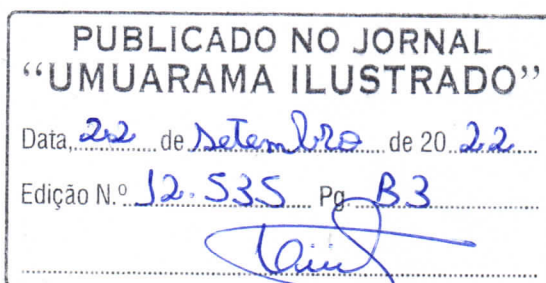 PUBLICADO NO JORNAL
“UMUARAMA ILUSTRADO”
Data, 22 de Setembro de 20 22
Edição N.º 12.535 Pg. B3